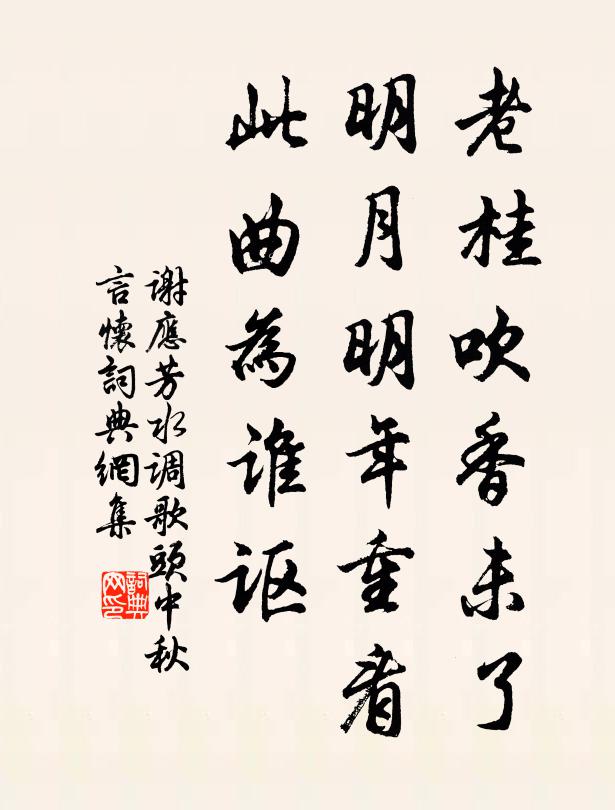 老桂吹香未了
明月明年重看
此曲為谁讴
谢應芳水调歌頭中秋
言懷詞典網集
詞典网印